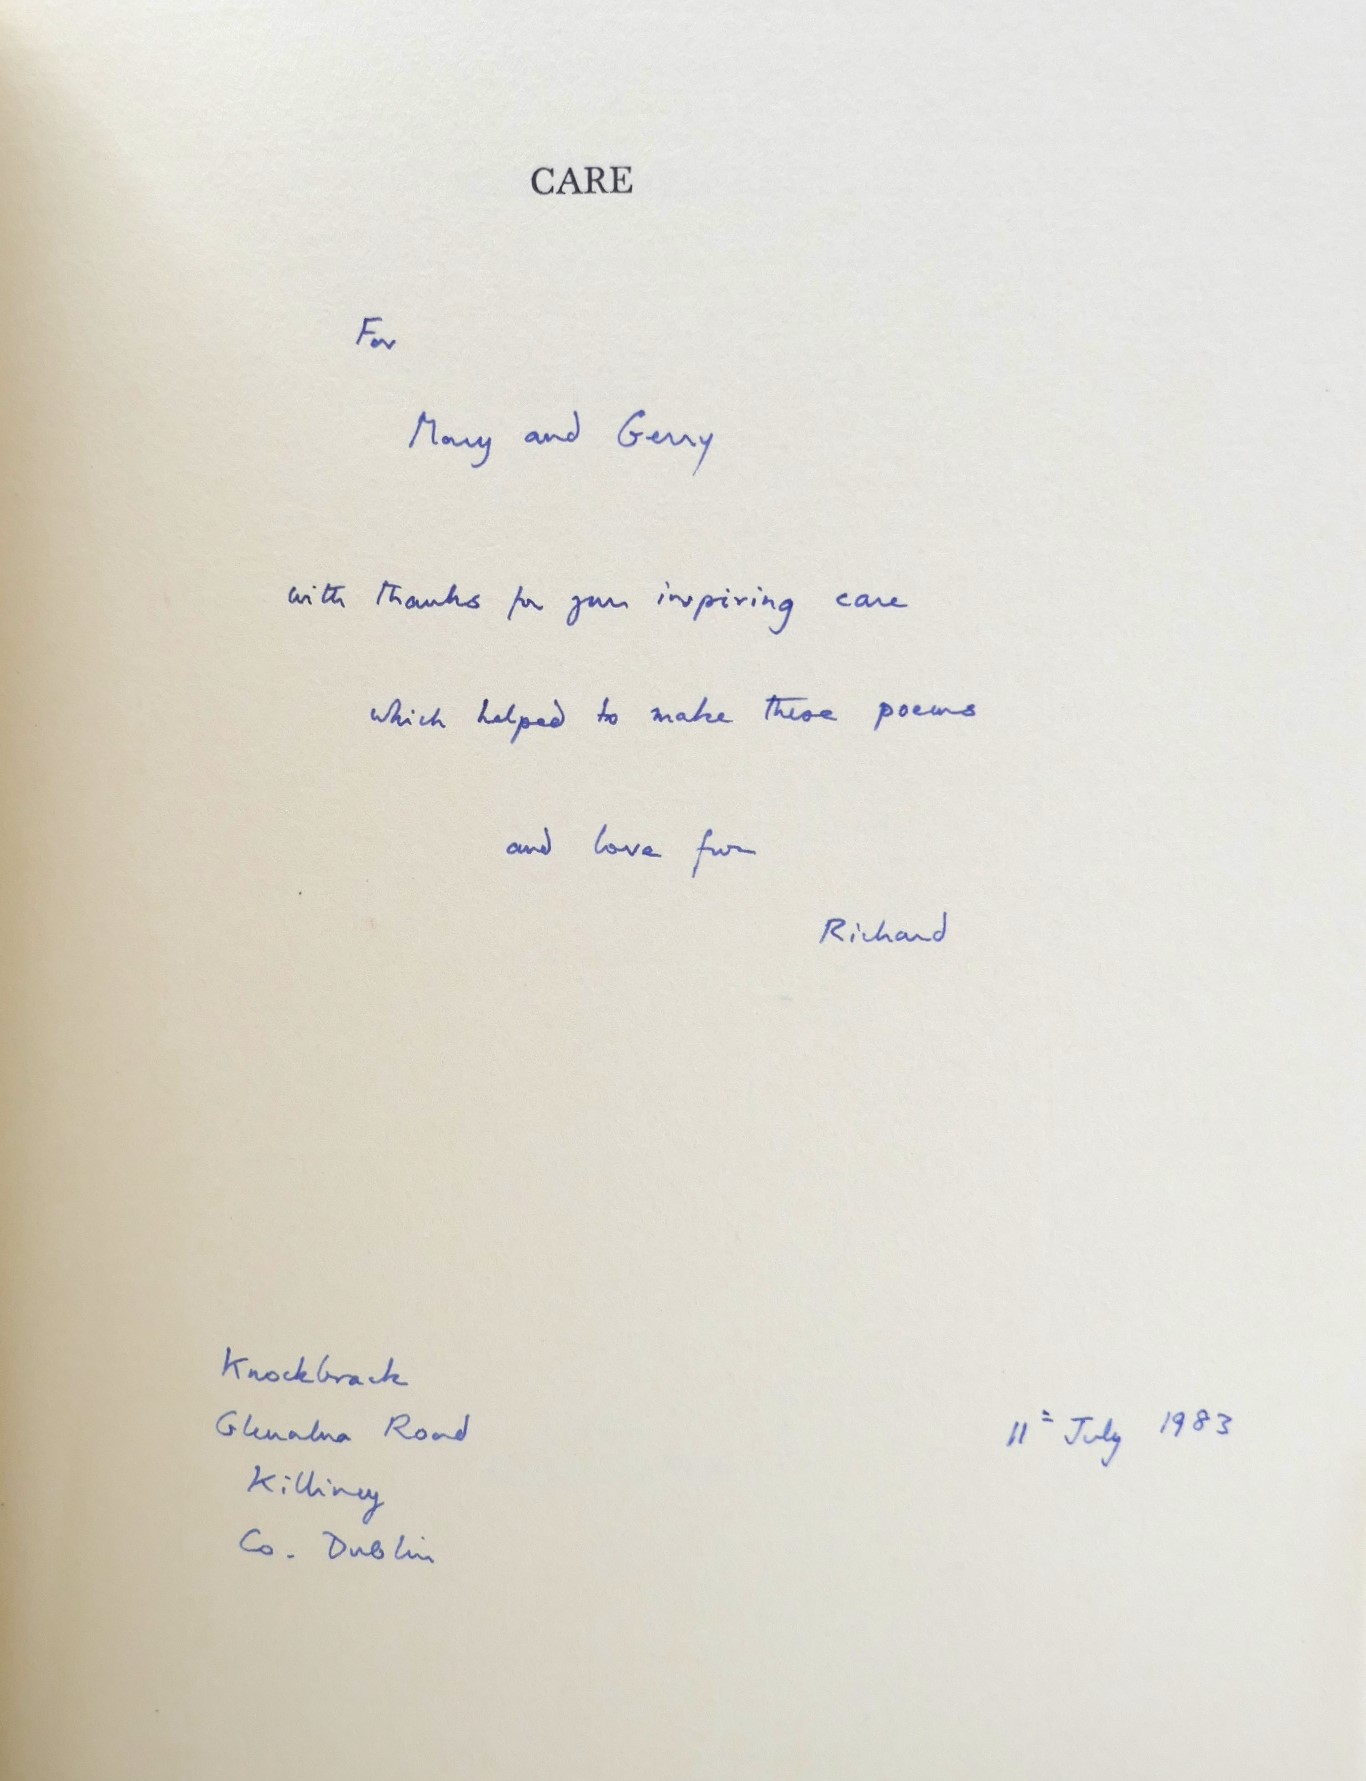 CARE
For
Mary and Gerry
with thanks for your inspiring care
which helped to make these poems
and love from
Richard
Knockbrack
Glenalua Road
Killiney
Co. Dublin
11= July 1983